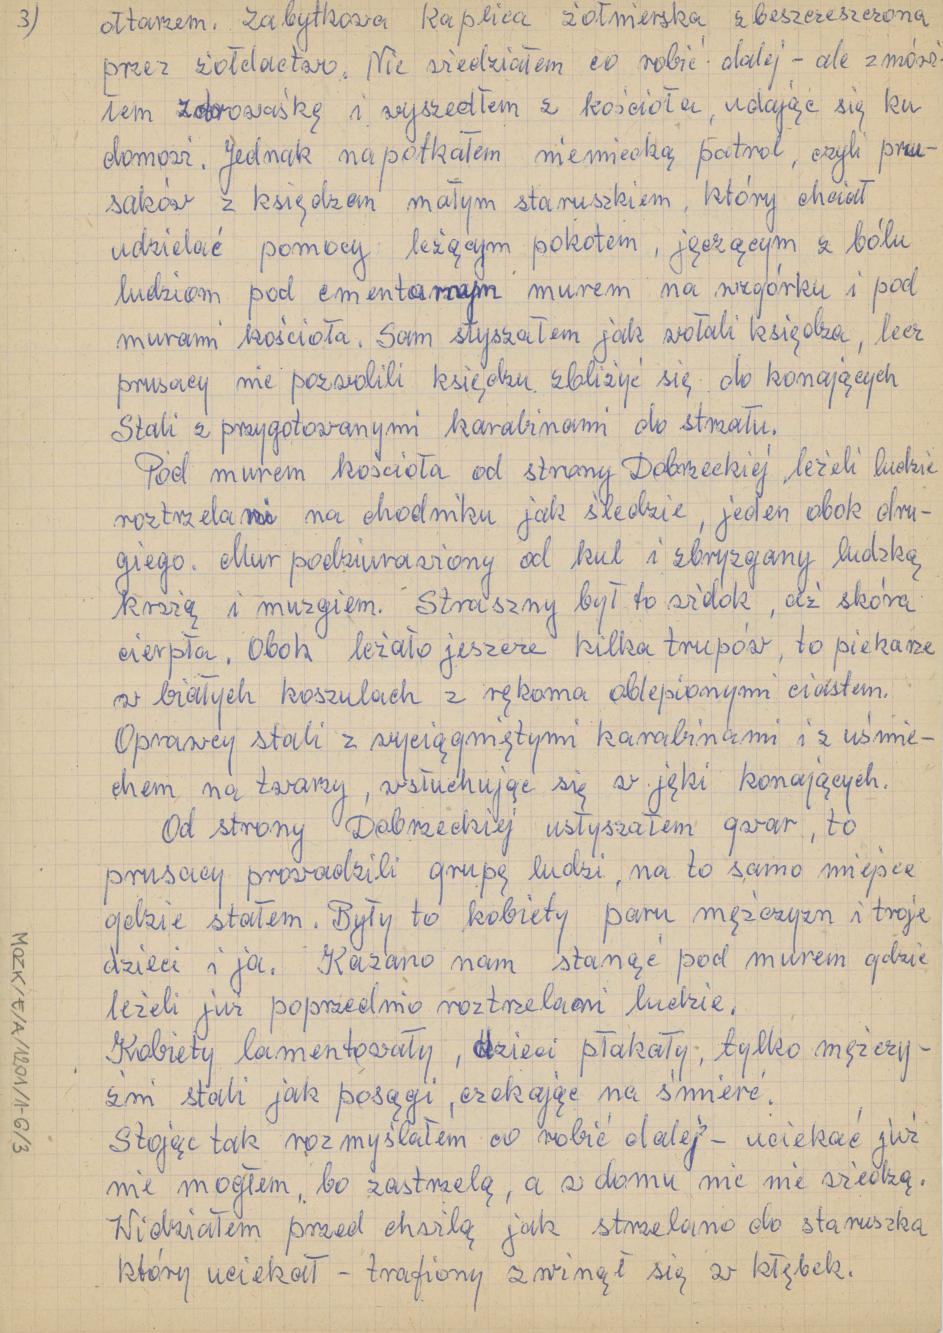 3)
ołtarzem. Zabytkowa Kaplica żołnierska zbeszczeszczona
przez żołdactwo. Nie wiedziałem co robić dalej – ale zmówi-
łem zdrowaśkę i wyszedłem z kościoła, udając się ku
domowi. Jednak napotkałem niemiecką patrol, czyli pru-
saków z księdzem małym staruszkiem, który chciał
udzielać pomocy leżącym pokotem, jęczącym z bólu
ludziom pod cmentarnym murem na wzgórku i pod
murami kościoła. Sam słyszałem jak wołali księdza, lecz
prusacy nie pozwolili księdzu zbliżyć się do konających
Stali z przygotowanymi karabinami do strzału.
Pod murem kościoła od strony Dobrzeckiej leżeli ludzie
roztrzelani na chodniku jak śledzie, jeden obok dru-
giego. Mur podziurawiony od kul i zbryzgany ludzką
krwią i muzgiem. Straszny był to widok, aż skóra
cierpła. Obok leżało jeszcze kilka trupów, to piekarze
w białych koszulach z rękoma oblepionymi ciastem.
Oprawcy stali z wyciągniętymi karabinami i z uśmie-
chem na twarzy, wsłuchując się w jęki konających.
Od strony Dobrzeckiej usłyszałem gwar, to
prusacy prowadzili grupę ludzi, na to samo miejsce
gdzie stałem. Były to kobiety paru mężczyzn i troje
dzieci i ja. Kazano nam stanąć pod murem gdzie
leżeli już poprzednio roztrzelani ludzie.
Kobiety lamentowały, dzieci płakały, tylko mężczy-
źni stali jak posągi, czekając na śmierć.
Stojąc tak rozmyślałem co robić dalej? – uciekać już
nie mogłem, bo zastrzelą, a w domu nic nie wiedzą.
Widziałem przed chwilą jak strzelano do staruszka
który uciekał – trafiony zwinął się w kłębek.
MOZK/E/A/1201/1-6/3